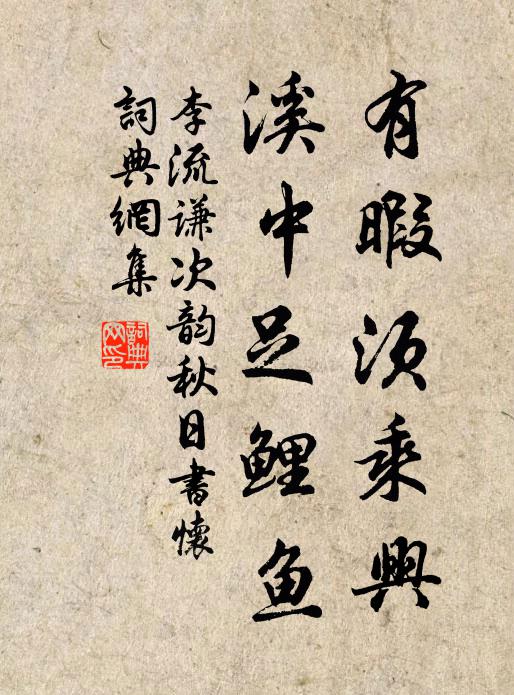 有暇须乘興
溪中足鯉鱼
李流谦次韵秋日書懷
詞典網集
詞典
网印